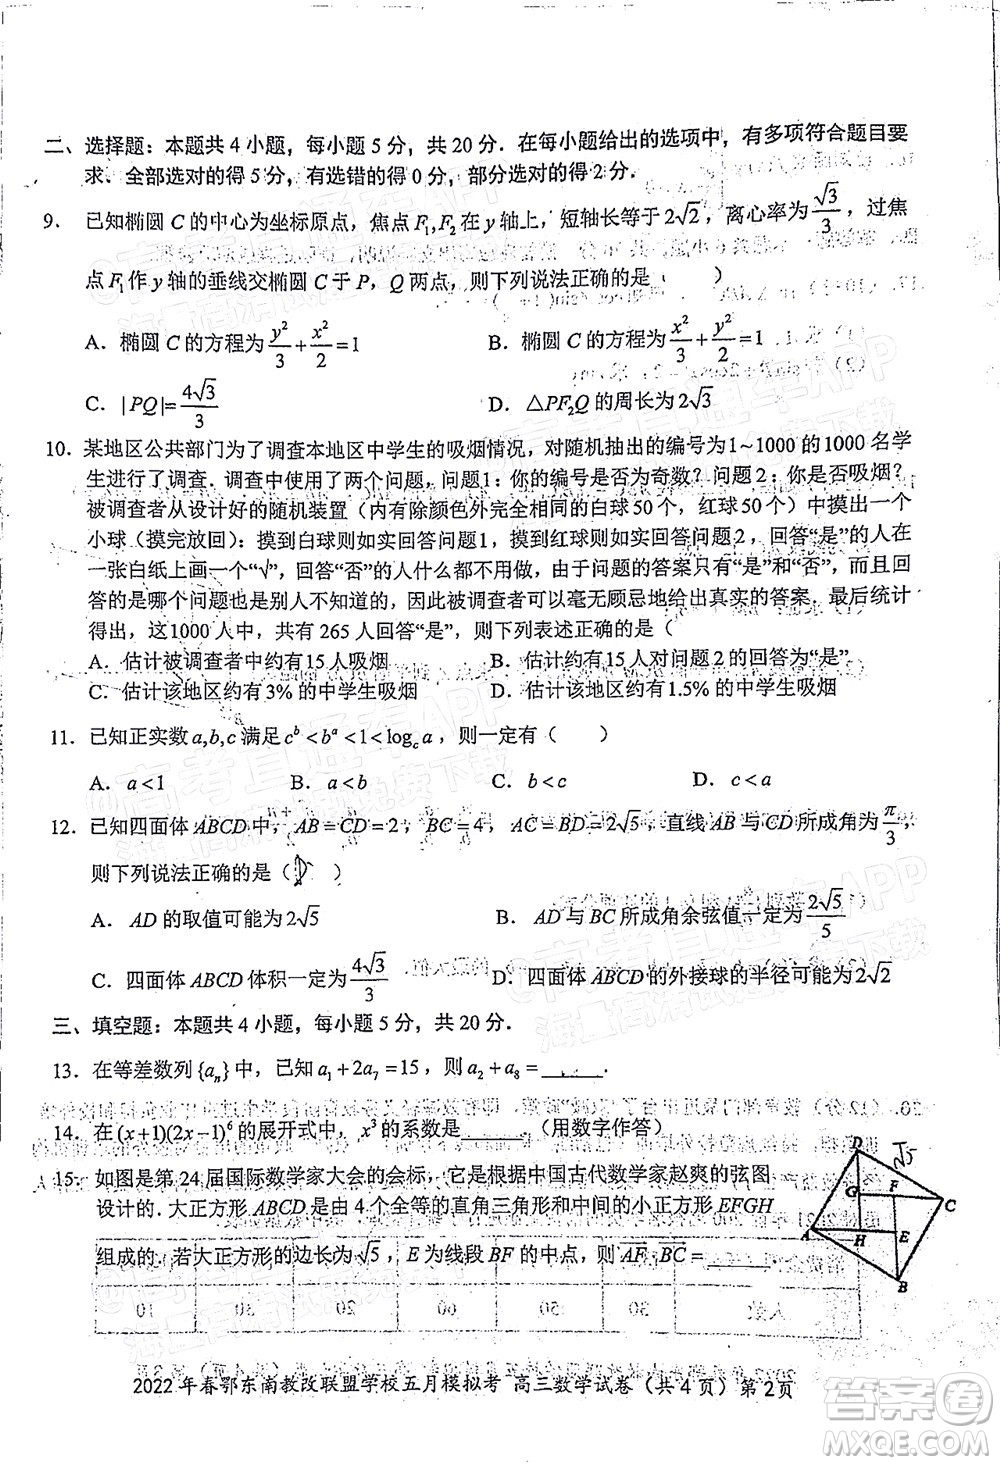 二、选择题：本题共 4 小题，每小题 5 分，共 20 分．在每小题给出的选项中，有多项符合题目要
求、全部选对的得 5 分，有选错的得 0 分，部分选对的得 2 分．
9． 已知椭圆 C 的中心为坐标原点，焦点 F₁,F₂ 在 y 轴上，短轴长等于 2√2，离心率为 √3/3，过焦
点 F₁ 作 y 轴的垂线交椭圆 C 于 P，Q 两点，则下列说法正确的是（ ）
A．椭圆 C 的方程为 y²/3 + x²/2 = 1 B．椭圆 C 的方程为 x²/3 + y²/2 = 1
C．|PQ|= 4√3/3 D．△PF₂Q 的周长为 2√3
10．某地区公共部门为了调查本地区中学生的吸烟情况，对随机抽出的编号为1~1000 的1000 名学
生进行了调查．调查中使用了两个问题，问题1：你的编号是否为奇数？问题 2：你是否吸烟？
被调查者从设计好的随机装置（内有除颜色外完全相同的白球 50 个，红球 50 个）中摸出一个
小球（摸完放回）：摸到白球则如实回答问题1，摸到红球则如实回答问题 2，回答“是”的人在
一张白纸上画一个“√”，回答“否”的人什么都不要做，由于问题的答案只有“是”和“否”，而且回
答的是哪个问题也是别人不知道的，因此被调查者可以毫无顾忌地给出真实的答案．最后统计
得出，这1000 人中，共有 265 人回答“是”，则下列表述正确的是（
A．估计被调查者中约有15 人吸烟 B．估计约有15 人对问题 2 的回答为“是”
C．估计该地区约有 3% 的中学生吸烟 D．估计该地区约有1.5% 的中学生吸烟
11．已知正实数 a,b,c 满足 cᵇ < bᵃ < 1 < log_c a，则一定有（ ）
A．a < 1 B．a < b C．b < c D．c < a
12．已知四面体 ABCD 中，AB = CD = 2，BC = 4，AC = BD = 2√5，直线 AB 与 CD 所成角为 π/3，
则下列说法正确的是（ ）
A．AD 的取值可能为 2√5 B．AD 与 BC 所成角余弦值一定为 2√5/5
C．四面体 ABCD 体积一定为 4√3/3 D．四面体 ABCD 的外接球的半径可能为 2√2
三、填空题：本题共 4 小题，每小题 5 分，共 20 分．
13．在等差数列 {aₙ} 中，已知 a₁ + 2a₇ = 15，则 a₂ + a₈ = ______．
14．在 (x+1)(2x−1)⁶ 的展开式中，x³ 的系数是______．（用数字作答）
15．如图是第 24 届国际数学家大会的会标，它是根据中国古代数学家赵爽的弦图
设计的．大正方形 ABCD 是由 4 个全等的直角三角形和中间的小正方形 EFGH
组成的．若大正方形的边长为 √5，E 为线段 BF 的中点，则 AF·BC = ______
D √5
G F
C
A H E
B
2022 年春鄂东南教改联盟学校五月模拟考 高三数学试卷（共 4 页）第 2 页
答案圈
MXQE.COM